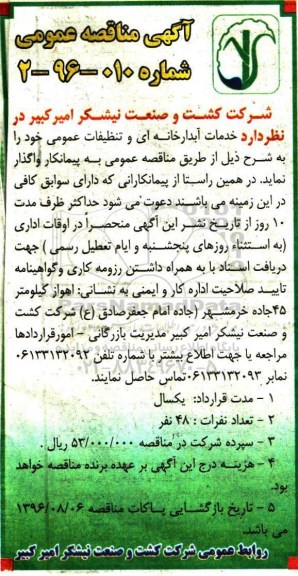 آگهی مناقصه عمومی
شماره ۰۱۰-۹۶-۲
شرکت کشت و صنعت نیشکر امیرکبیر در
نظردارد خدمات آبدارخانه ای و تنظیفات عمومی خود را
به شرح ذیل از طریق مناقصه عمومی به پیمانکار واگذار
نماید. در همین راستا از پیمانکارانی که دارای سوابق کافی
در این زمینه می باشند دعوت می شود حداکثر ظرف مدت
۱۰ روز از تاریخ نشر این آگهی منحصراً در اوقات اداری
(به استثناء روزهای پنجشنبه و ایام تعطیل رسمی ) جهت
دریافت اسناد با به همراه داشتن رزومه کاری و گواهینامه
تایید صلاحیت اداره کار و ایمنی به نشانی: اهواز کیلومتر
۴۵جاده خرمشهر (جاده امام جعفرصادق (ع) شرکت کشت
و صنعت نیشکر امیر کبیر مدیریت بازرگانی – امورقراردادها
مراجعه یا جهت اطلاع بیشتر با شماره تلفن ۰۶۱۳۳۱۳۲۰۹۲
نمابر ۰۶۱۳۳۱۳۲۰۹۳تماس حاصل نمایند.
۱ – مدت قرارداد: یکسال
۲ – تعداد نفرات : ۴۸ نفر
۳ – سپرده شرکت در مناقصه ۵۳/۰۰۰/۰۰۰ ریال .
۴ – هزینه درج این آگهی بر عهده برنده مناقصه خواهد
بود.
۵ – تاریخ بازگشایی پاکات مناقصه ۱۳۹۶/۰۸/۰۶
می باشد.
روابط عمومی شرکت کشت و صنعت نیشکر امیر کبیر